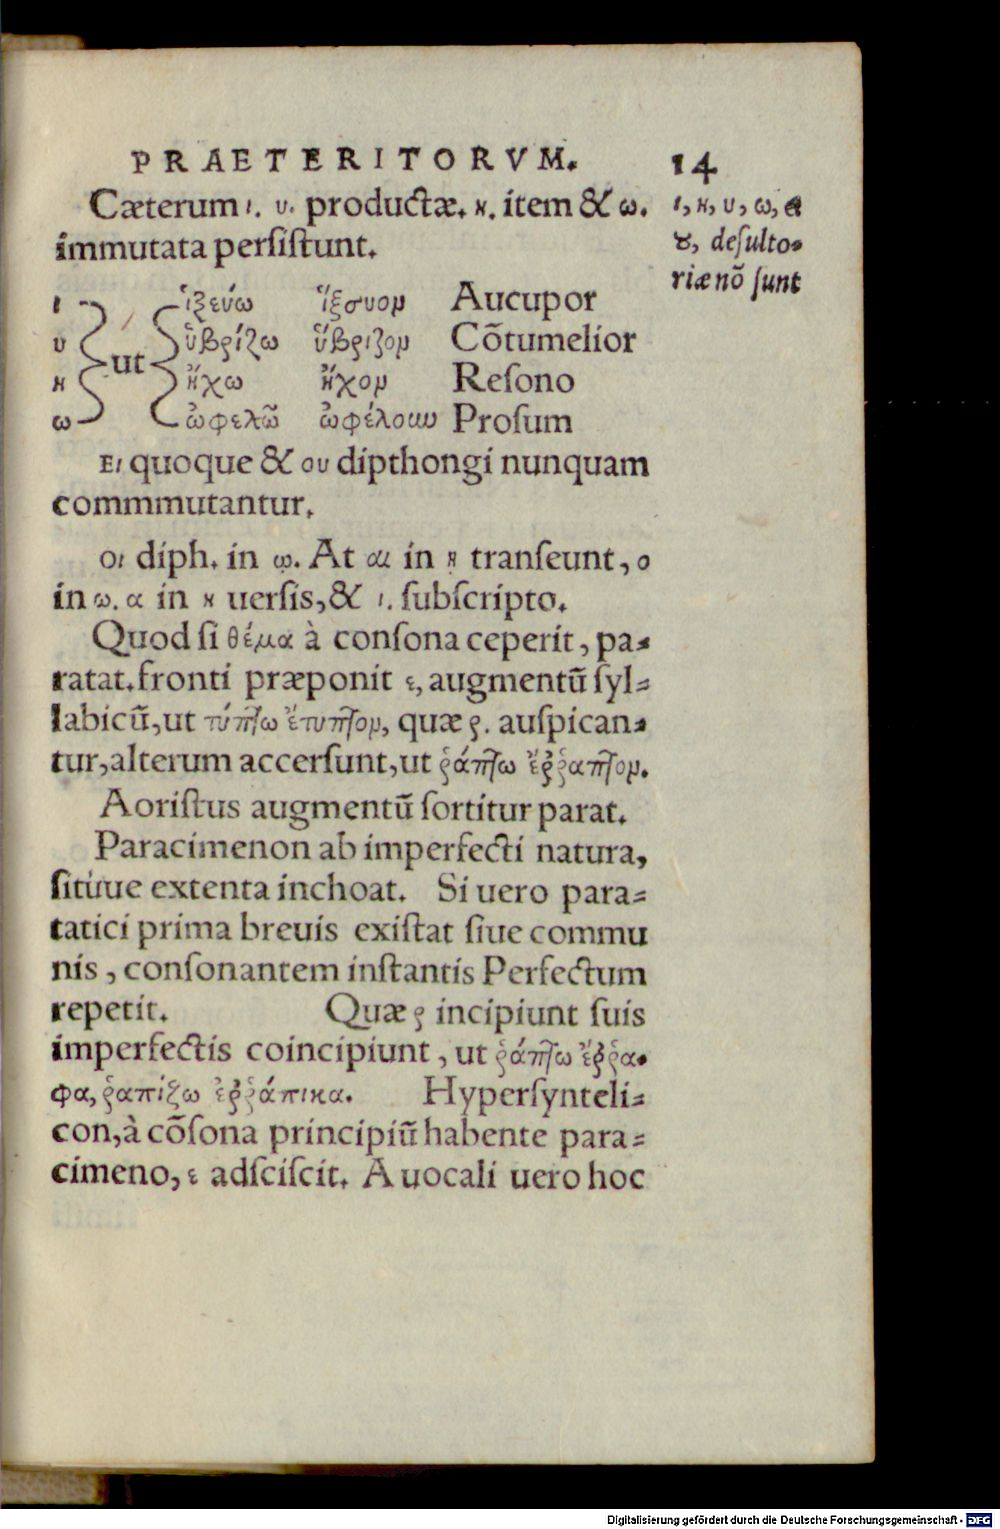 PRAETERITORVM. 14
Cæterum ι. υ. productæ. η. item & ω.
immutata persistunt.
ι, η, υ, ω, ει
ȣ, desulto-
riæ nõ sunt
ι ἰξεύω ἴξευον Aucupor
υ ὑβρίζω ὕβριζον Cõtumelior
ut
η ἤχω ἤχον Resono
ω ὠφελῶ ὠφέλουν Prosum
Ει quoque & ου dipthongi nunquam
commmutantur.
Οι diph. in ῳ. At αι in ῃ transeunt, ο
in ω. α in η uersis, & ι. subscripto.
Quod si θέμα à consona ceperit, pa-
ratat. fronti præponit ε, augmentũ syl-
labicũ, ut τύπτω ἔτυπτον, quæ ρ. auspican-
tur, alterum accersunt, ut ῥάπτω ἔῤῥαπτον.
Aoristus augmentũ sortitur parat.
Paracimenon ab imperfecti natura,
situue extenta inchoat. Si uero para-
tatici prima breuis existat siue commu
nis, consonantem instantis Perfectum
repetit. Quæ ρ incipiunt suis
imperfectis coincipiunt, ut ῥάπτω ἔῤῥα-
φα, ῥαπίζω ἐῤῥάπικα. Hypersynteli-
con, à cõsona principiũ habente para-
cimeno, ε adsciscit. A uocali uero hoc
Digitalisierung gefördert durch die Deutsche Forschungsgemeinschaft - DFG